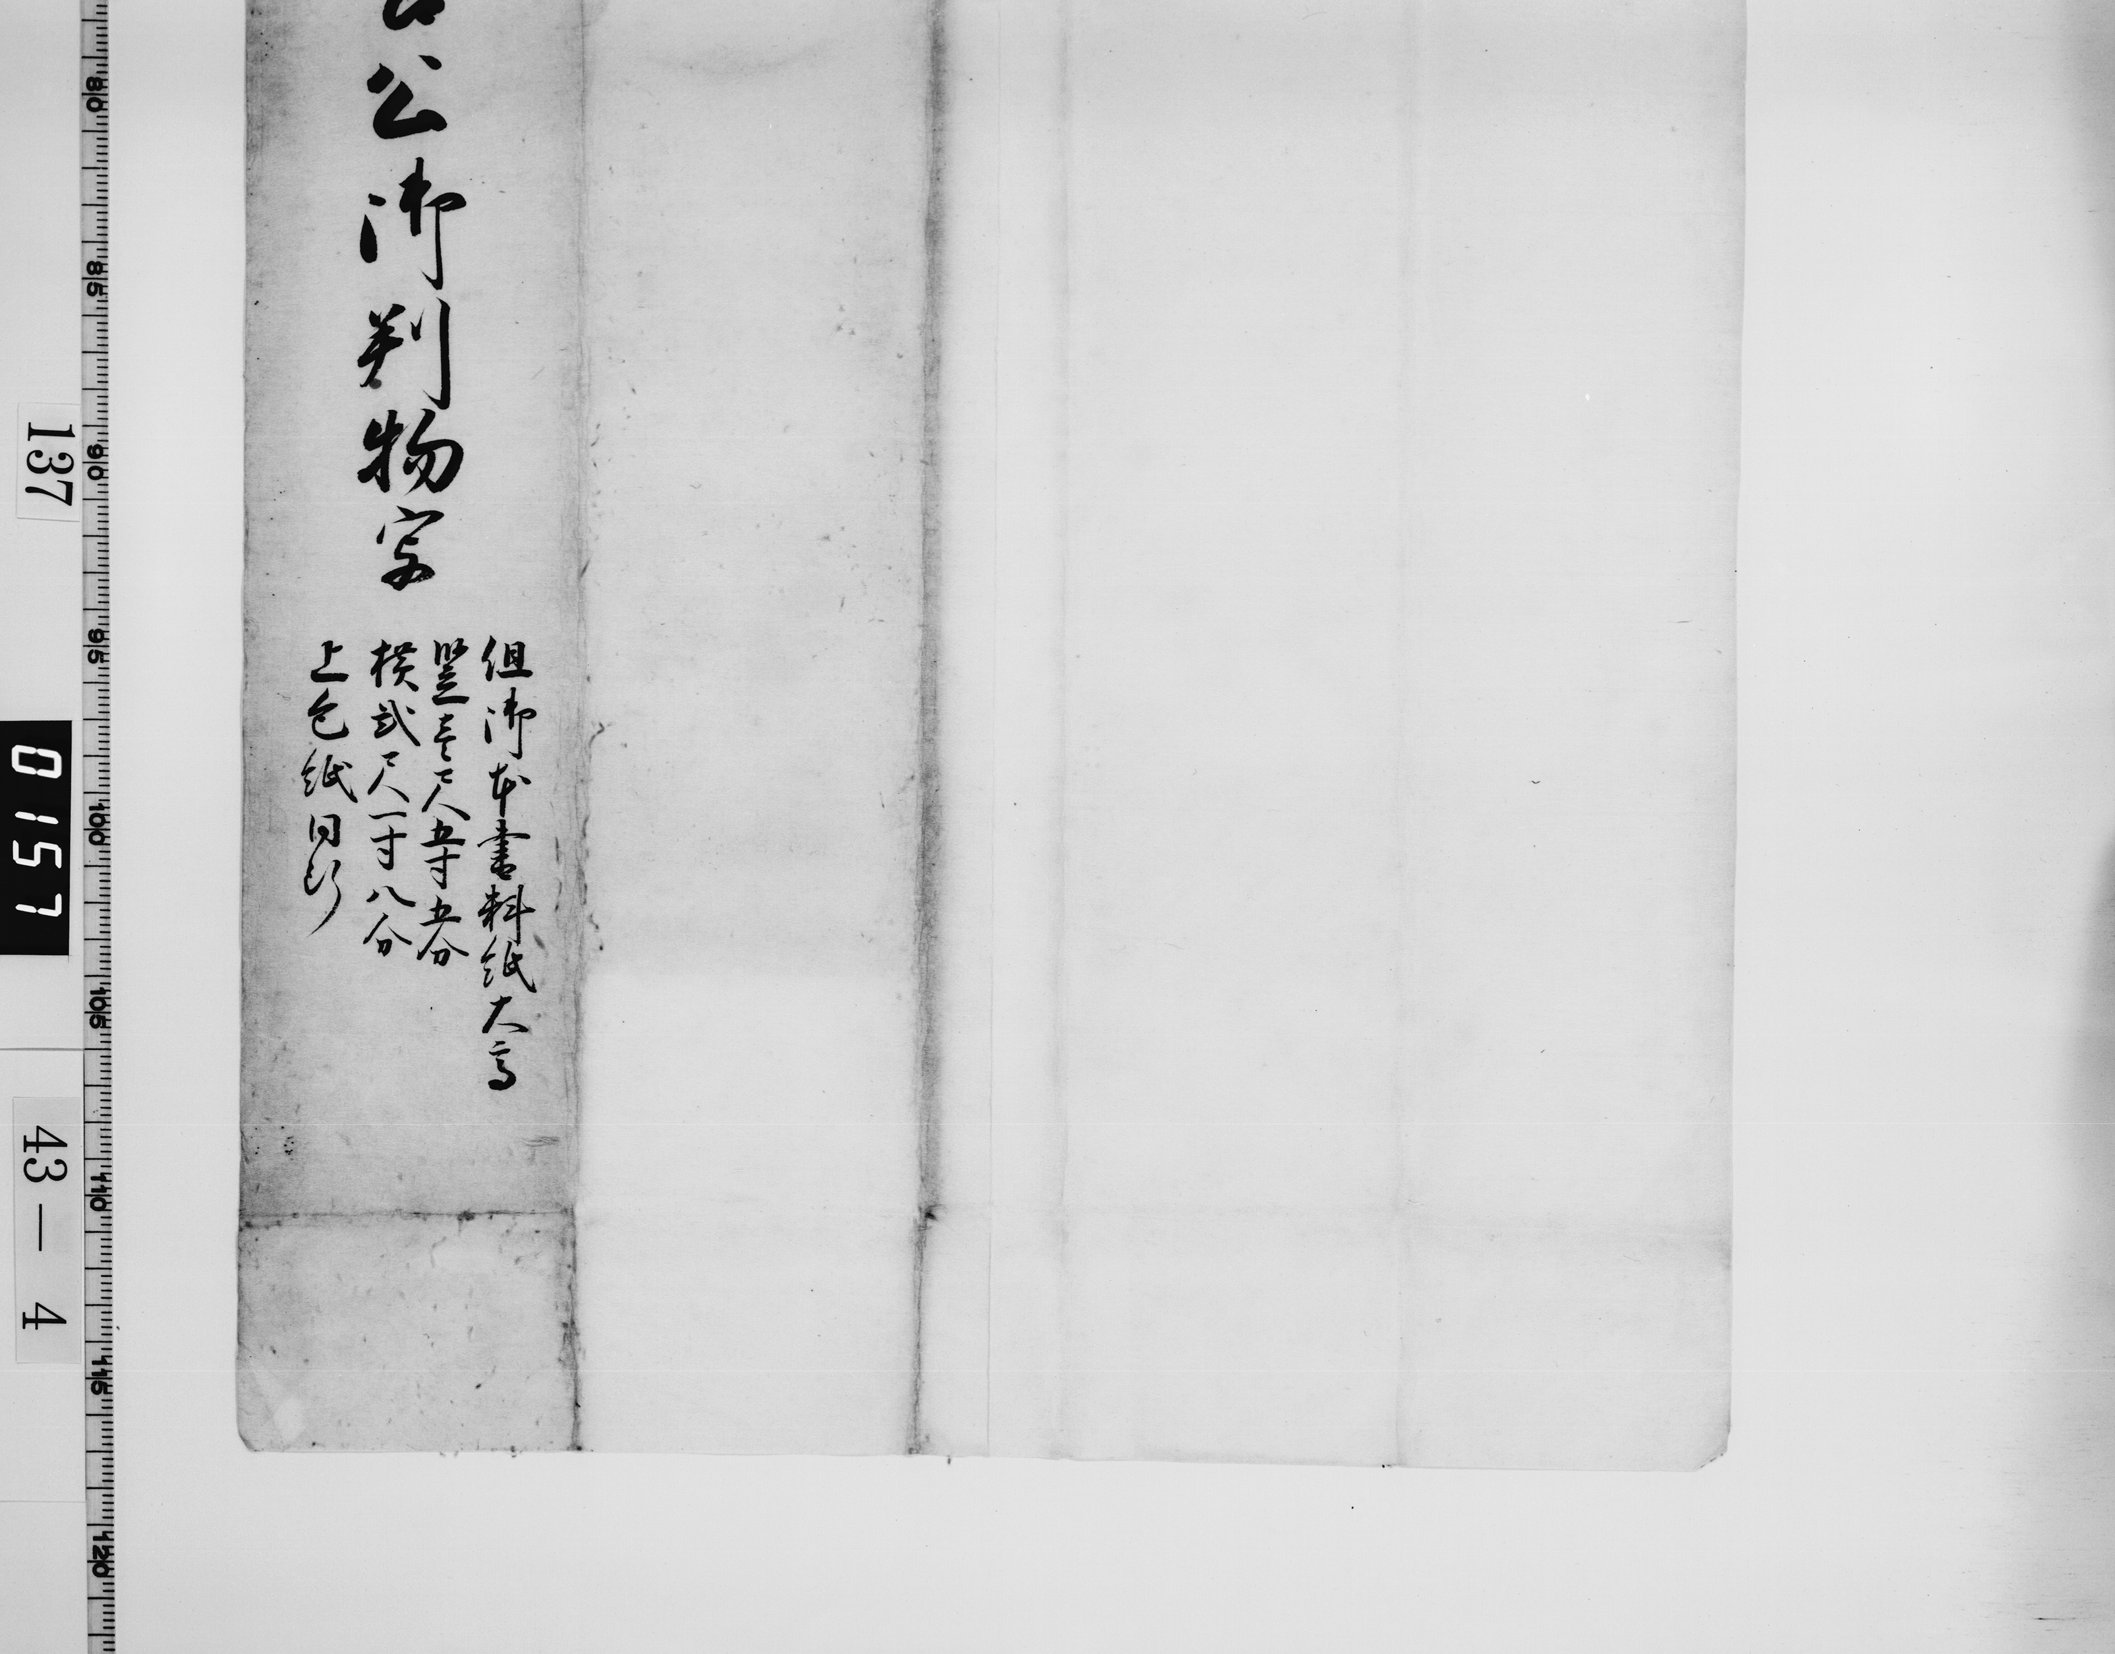 公御判物写
但御本書料紙大高
竪壱尺五寸五分
横弐尺一寸八分
上包紙同断
137
0157
43—4
80
85
90
95
100
105
110
115
120